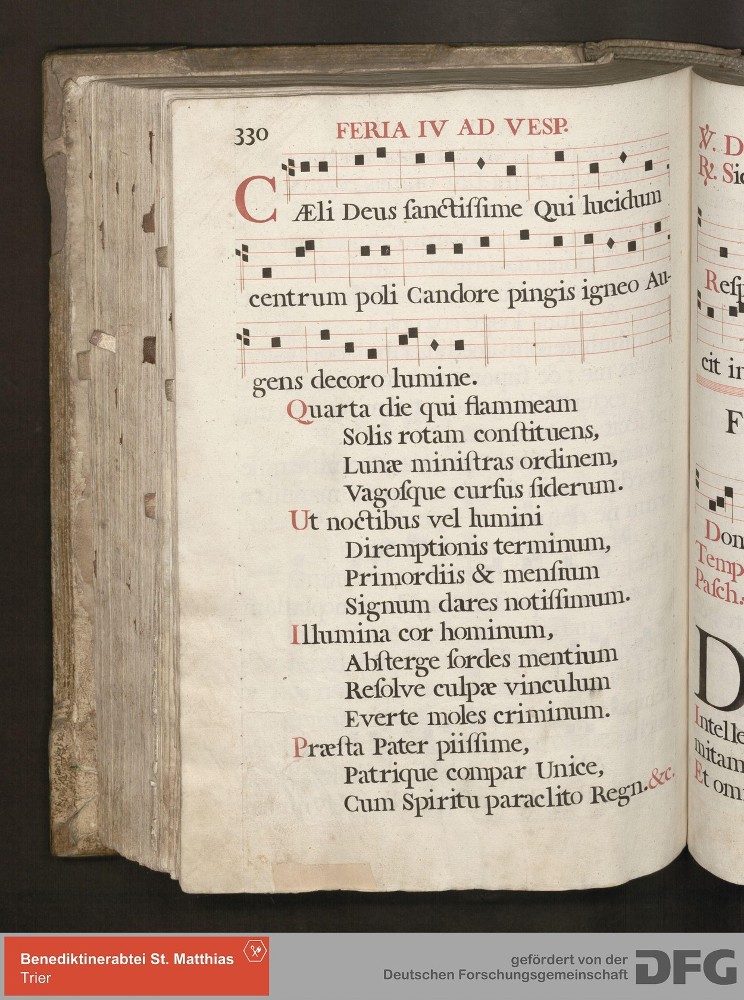 330 FERIA IV AD VESP.
CÆli Deus ſanctiſſime Qui lucidum
centrum poli Candore pingis igneo Au-
gens decoro lumine.
Quarta die qui flammeam
Solis rotam conſtituens,
Lunæ miniſtras ordinem,
Vagoſque curſus ſiderum.
Ut noctibus vel lumini
Diremptionis terminum,
Primordiis & menſium
Signum dares notiſſimum.
Illumina cor hominum,
Abſterge ſordes mentium
Reſolve culpæ vinculum
Everte moles criminum.
Præſta Pater piiſſime,
Patrique compar Unice,
Cum Spiritu paraclito Regn. &c.
℣. D
℟. Sic
Reſp
cit in
F
Don
Temp
Paſch.
D
Intelle
mitam
Et om
Benediktinerabtei St. Matthias
Trier
gefördert von der
Deutschen Forschungsgemeinschaft
DFG